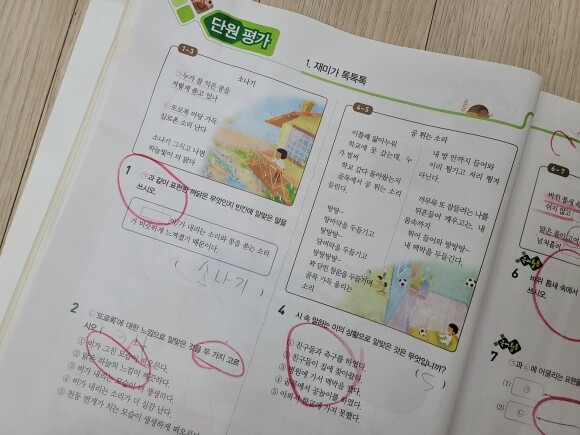 단원 평가
1. 재미가 톡톡톡
1-3
소나기
㉠누가 잘 익은 콩을
저렇게 쏟고 있나
㉡또로록 마당 가득
실로폰 소리 난다
소나기 그치고 나면
하늘빛이 더 맑다
1
㉠과 같이 표현한 까닭은 무엇인지 빈칸에 알맞은 말을
쓰시오.
가 내리는 소리와 콩을 쏟는 소리
가 비슷하게 느껴졌기 때문이다.
( 소나기 )
2
㉡'또로록'에 대한 느낌으로 알맞은 것을 두 가지 고르
시오.
① 비가 그친 모습이
② 맑은 하늘의 느낌이
③ 비가 내리는 모습이 더 생생하다.
④ 비가 내리는 소리가 더 실감 난다.
⑤ 천둥 번개가 치는 모습이 생생하게 떠오른다.
4-5
공 튀는 소리
이틀째 앓아누워
학교에 못 갔는데, 누
가 벌써
학교 갔다 돌아왔는지
골목에서 공 튀는 소리
들린다.
탕탕~
땅바닥을 두들기고
탕탕탕~
담벼락을 두들기고
탕탕탕탕~
꽉 닫힌 창문을 두들기며
골목 가득 울리는
소리
내 방 안까지 들어와
이리 튕기고 저리 튕겨
다닌다.
까무룩 또 잠들려는 나를
뒤흔들어 깨우고는, 내
몸속까지
튀어 들어와 탕탕탕~
내 맥박을 두들긴다.
4
시 속 말하는 이의 상황으로 알맞은 것은 무엇입니까?
( 5 )
① 친구들과 축구를 하였다.
② 친구들이 집에 찾아왔다.
③ 병원에 가서 맥박을 쟀다.
④ 골목에서 공놀이를 하였다.
⑤ 아파서 학교에 가지 못했다.
6-7
바위 틈새
쉬지 않고
맑은
넘쳐흘러
6
바위 틈새 속에서
쓰시오.
7
㉠과 ㉡에 어울리는 표현을
(1) ㉠
(2) ㉡